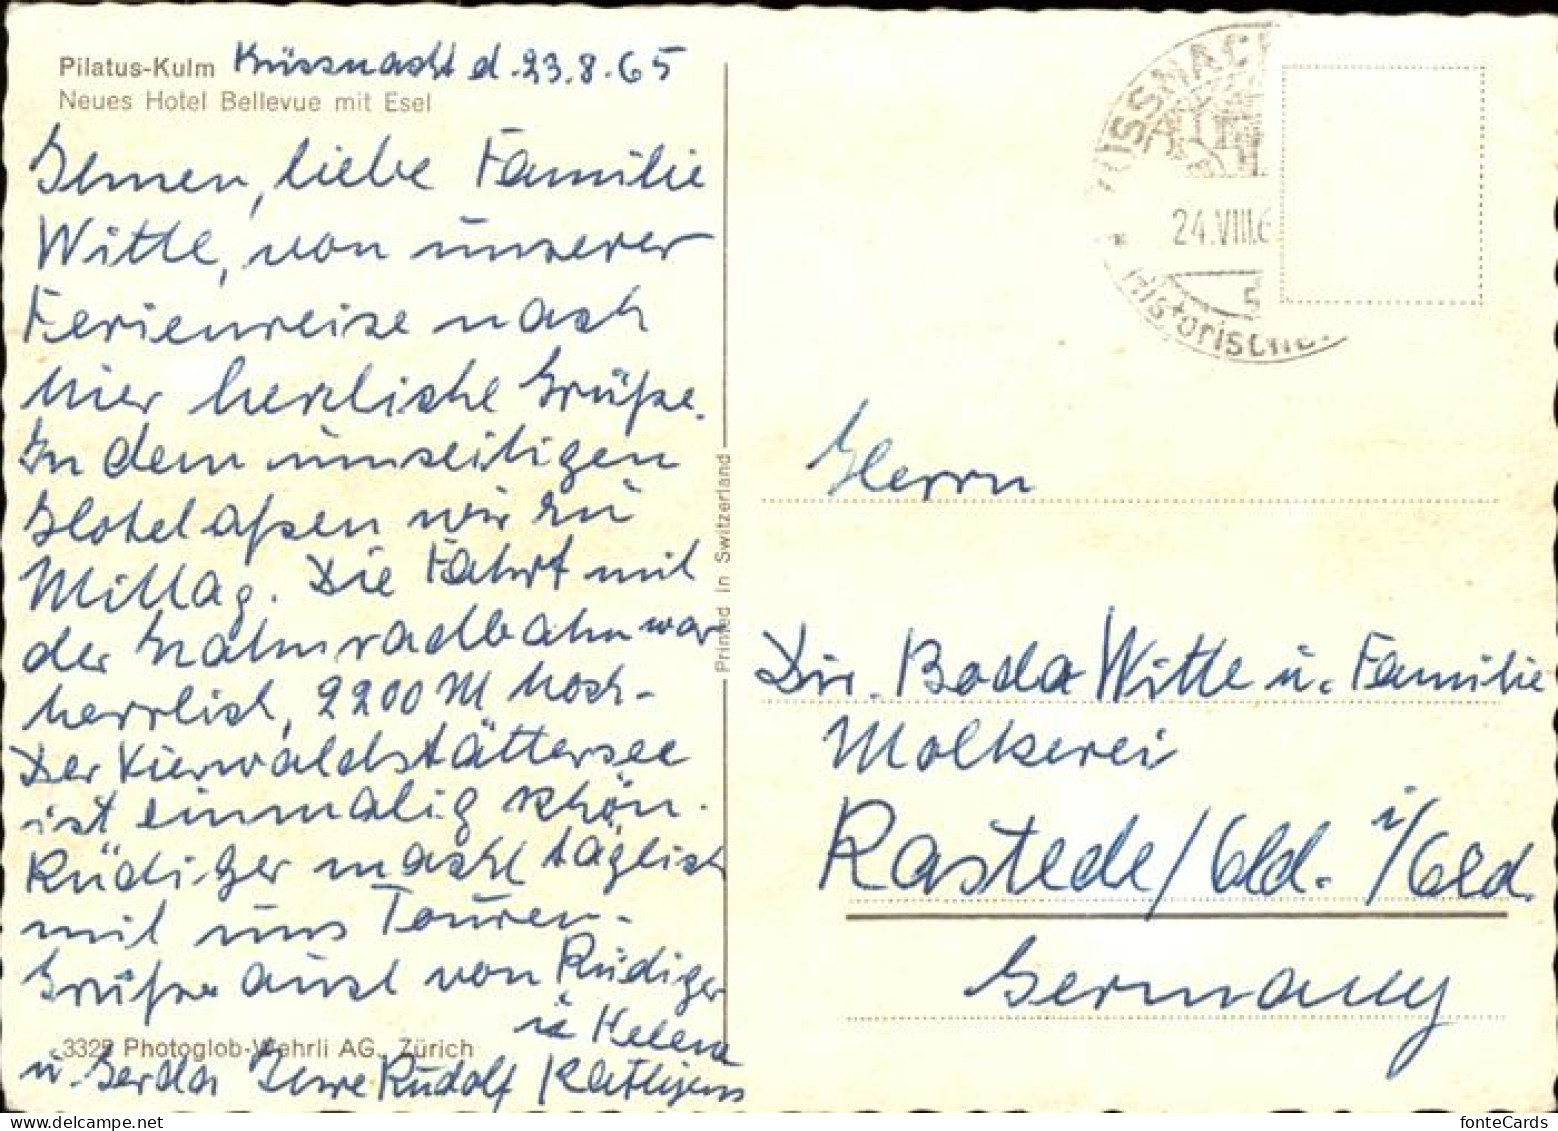 Pilatus-Kulm Küssnacht d. 23.8.65
Neues Hotel Bellevue mit Esel
Ihnen, liebe Familie
Witte, von unserer
Ferienreise nach
hier herzliche Grüße.
In dem umseitigen
Hotel aßen wir zu
Mittag. Die Fahrt mit
der Zahnradbahn war
herrlich, 2200 M hoch-
Der Vierwaldstättersee
ist einmalig schön.
Rüdiger macht täglich
mit uns Touren-
Grüße auch von Rüdiger
u Helene
3325 Photoglob-Wehrli AG. Zürich
u. Gerda Ihre Rudolf
Printed in Switzerland
24.VIII.6
Historische
Herrn
Dir. Bodo Witte u. Familie
Molkerei
Rastede/Old. i/Old.
Germany
fonteCards